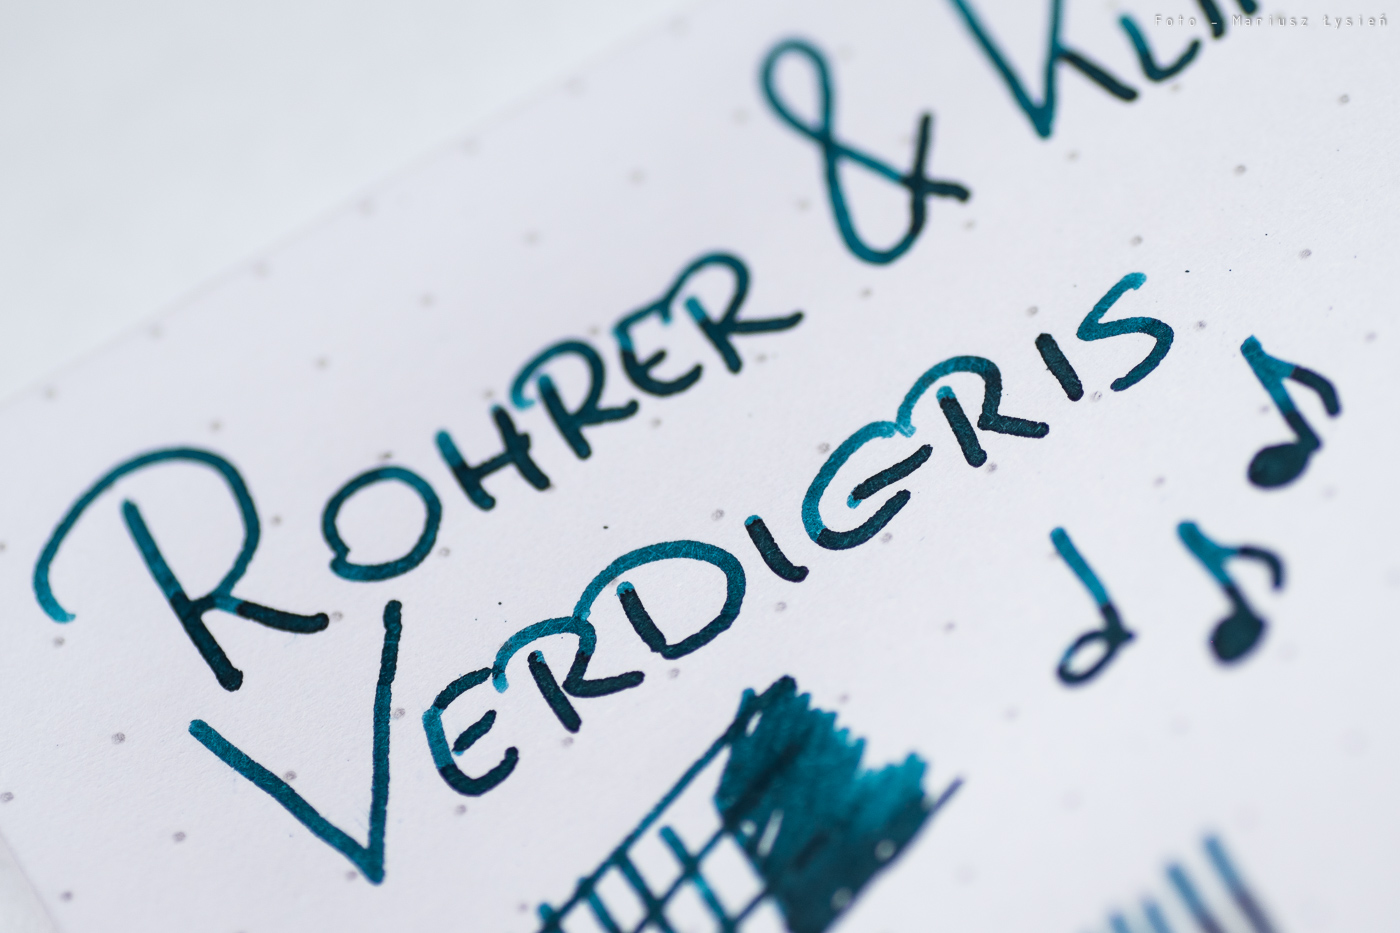 Foto - Mariusz Łysień
ROHRER & KLI
VERDIGRIS